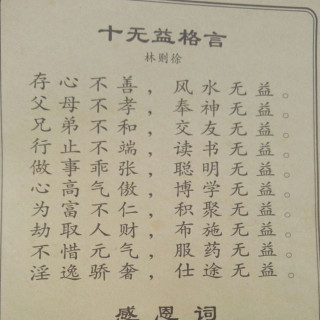 十无益格言
林则徐
存心不善，风水无益。
父母不孝，奉神无益。
兄弟不和，交友无益。
行止不端，读书无益。
做事乖张，聪明无益。
心高气傲，博学无益。
为富不仁，积聚无益。
劫取人财，布施无益。
不惜元气，服药无益。
淫逸骄奢，仕途无益。
感恩词